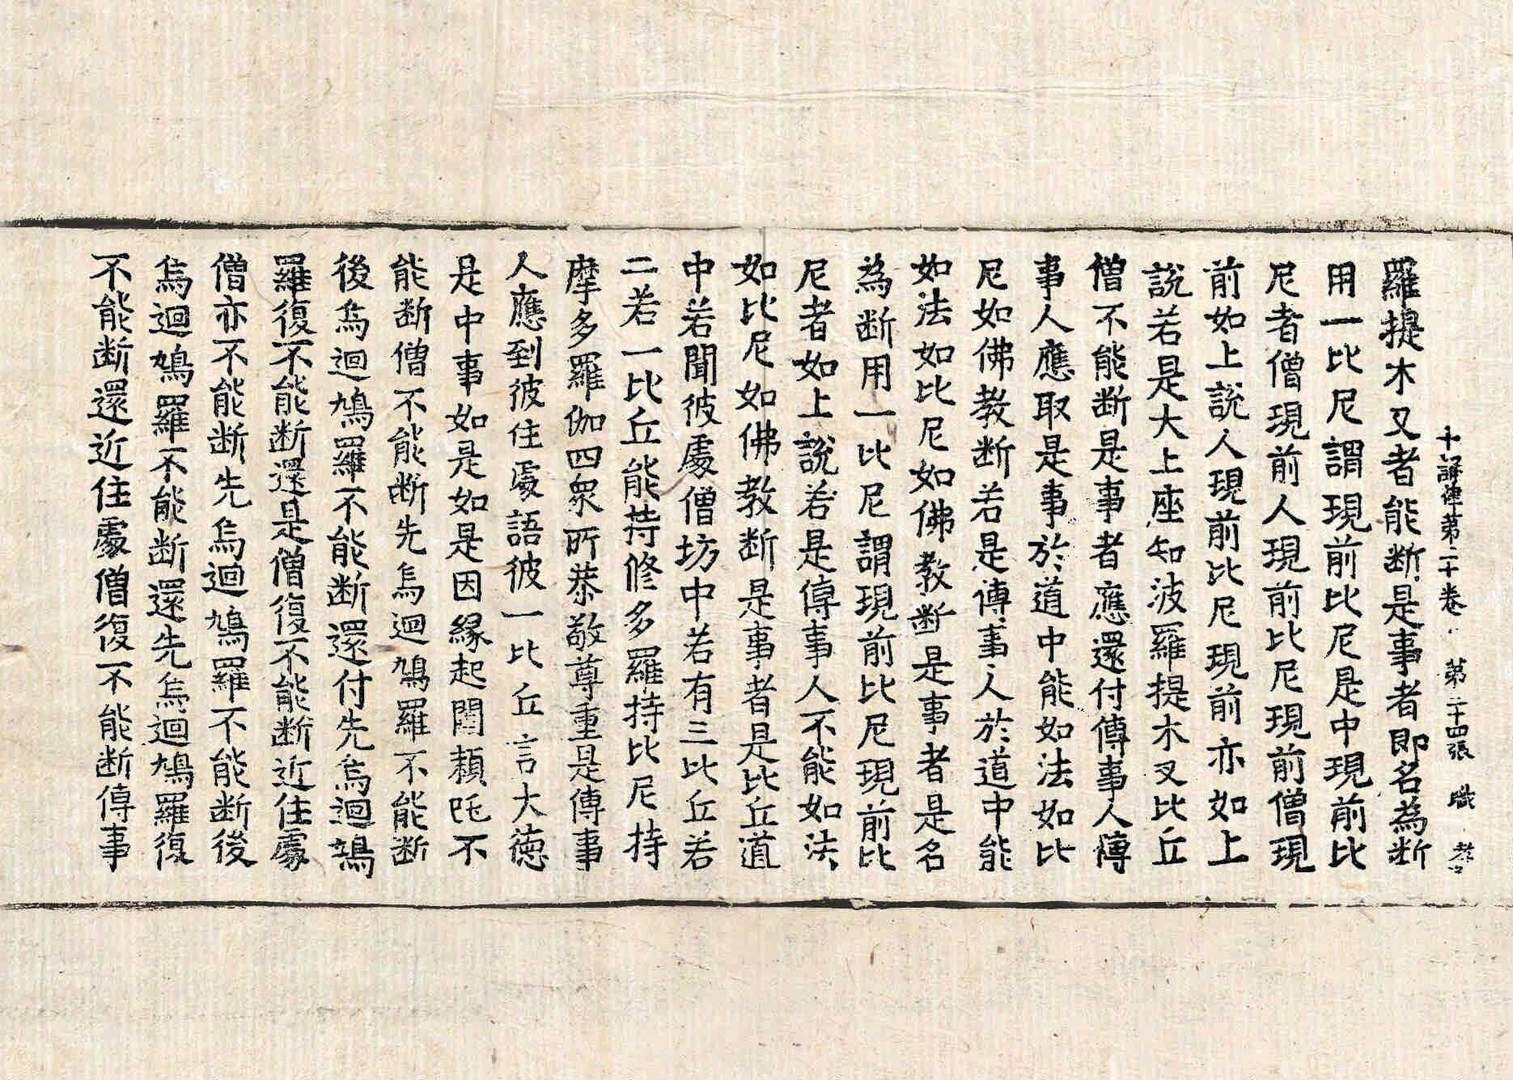 十誦律第二十卷 第二十四張 職
羅提木叉者能断是事者即名為断
用一比尼謂現前比尼是中現前比
尼者僧現前人現前比尼現前僧現
前如上說人現前比尼現前亦如上
說若是大上座知波羅提木叉比丘
僧不能断是事者應還付傳事人傳
事人應取是事於道中能如法如比
尼如佛教断若是傳事人於道中能
如法如比尼如佛教断是事者是名
為断用一比尼謂現前比尼現前比
尼者如上說若是傳事人不能如法
如比尼如佛教断是事者是比丘道
中若聞彼處僧坊中若有三比丘若
二若一比丘能持修多羅持比尼持
摩多羅伽四衆所恭敬尊重是傳事
人應到彼住處語彼一比丘言大德
是中事如是如是因緣起闥頼吒不
能断僧不能断先烏迴鳩羅不能断
後烏迴鳩羅不能断還付先烏迴鳩
羅復不能断還是僧復不能断近住處
僧亦不能断先烏迴鳩羅不能断後
烏迴鳩羅不能断還先烏迴鳩羅復
不能断還近住處僧復不能断傳事